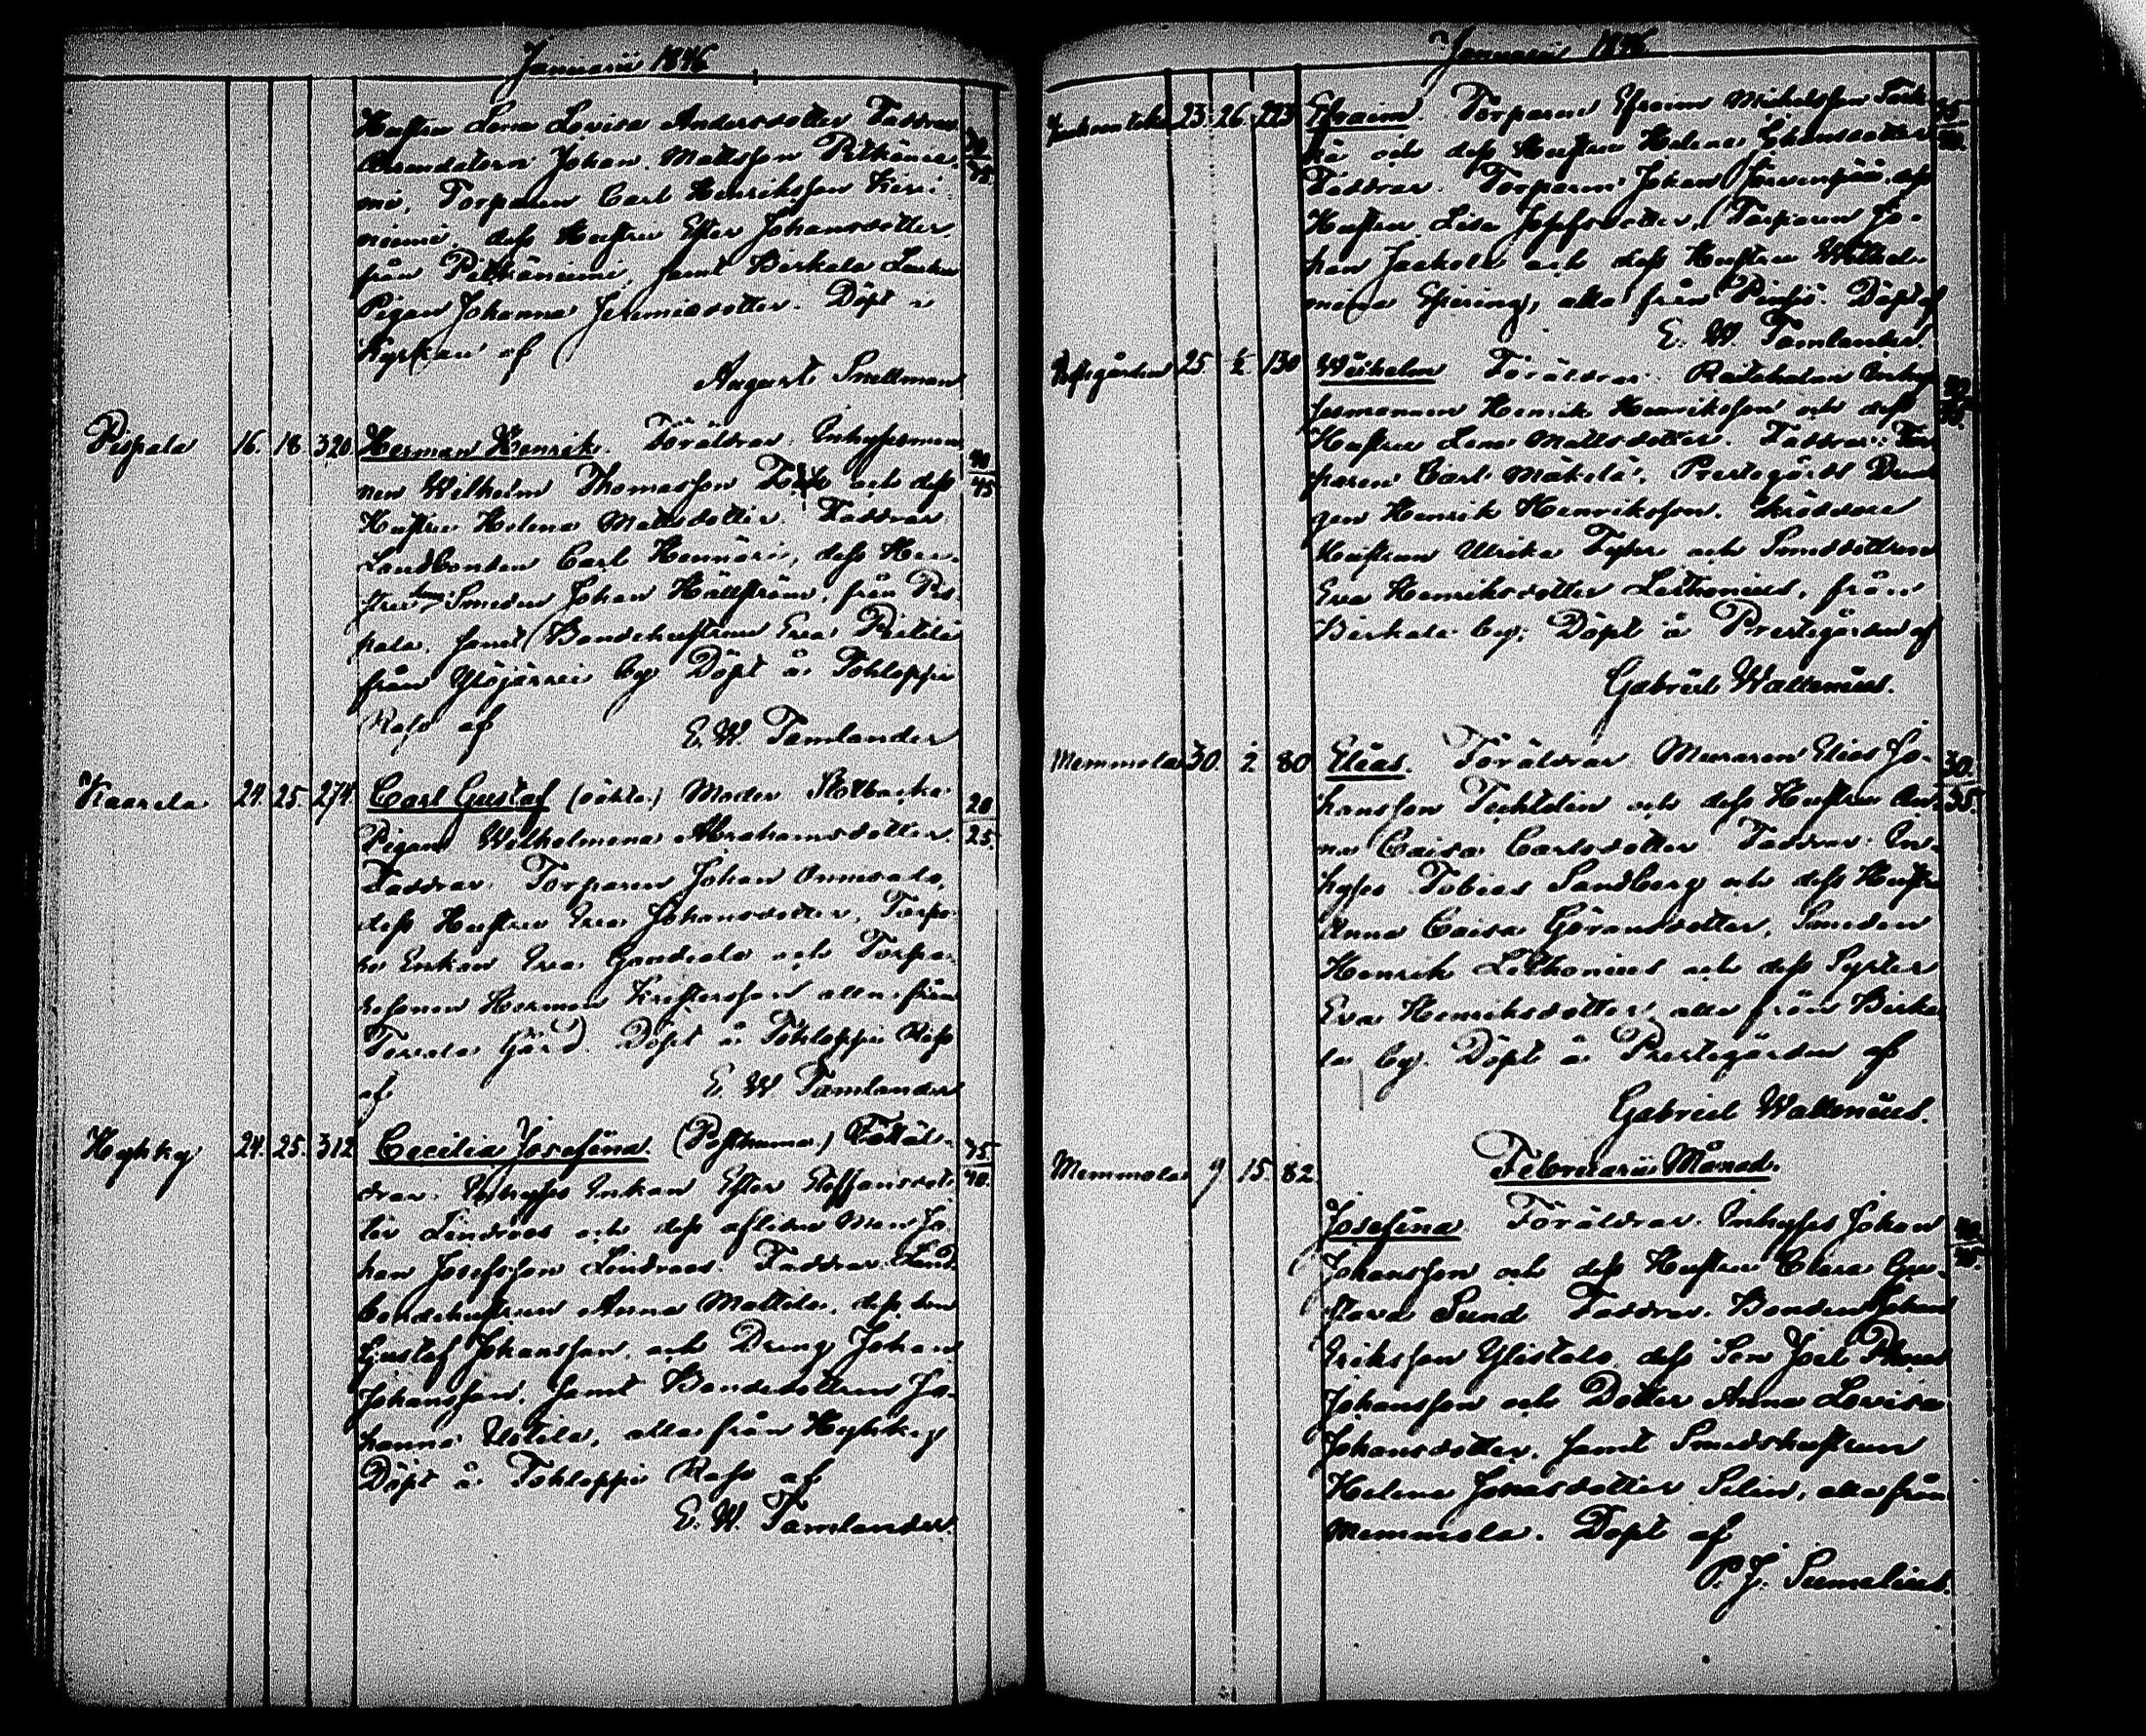 Januarii 1846
Hustru Lena Lovisa Andersdotter Faddrar
Johan Mattsson
Torparen Carl Henriksson
niemi, dess Hustru Ester Johansdotter
från Pitkäniemi, samt Birkala
Pigan Johanna Jeremiædotter. Döpt i
Kyrkan af
August Snellman
30 / 35
Pispala 16. 18 320 Herman Henrik. Föräldrar: Inhysesman
nen Wilhelm Thomasson och dess
Hustru Helena Mattsdotter. Faddrar
Landbonden Carl Hennäri, dess Hu-
stru Smeden Johan Hällström, från Pis
pala, samt Bondehustrun Eva Pietilä
från Ylöjärvi by Döpt å Tohloppi
Rusth. af
E. W. Tamlander
40 / 45
Kaarela 24. 25. 274 Carl Gustaf (oäkta) Moder
Pigan Wilhelmina Abrahamsdotter.
Faddrar: Torparen Johan
dess Hustru Eva Johansdotter, Torpa-
re Enkan Eva och Torpa-
resonen Herman Kristersson alla från
gård. Döpt å Tohloppi
af
E. W. Tamlander
20 / 25
Hyhky 24. 25. 312 Cecilia Josefina. (Posthuma) Föräl-
drar. Inhyses Enkan Ester Steffansdot-
ter Lindroos och dess aflidna Man Jo-
han Josefsson Lindroos. Faddrar: Land-
bondehustrun Anna Mattila, dess Son
Gustaf Johansson, och Dreng Johan
Johansson, samt Bondedottren Jo-
hanna Uotila, alla från Hyhky
Döpt å Tohloppi af
E. W. Tamlander.
35 / 40
Januarii 1846
23. 26 223 Efraim. Torparen Efraim Michelsson
och dess Hustru Helena Johansdotter
Faddrar. Torparen Johan Järvenpää, dess
Hustru Lisa Josefsdotter, Torparen Jo-
han Jaakola och dess Hustru Wilhel-
mina alla från Pinsiö. Döpt af
E. W. Tamlander.
25 130 Wilhelm Föräldrar: Inhy-
sesmannen Henrik Henriksson och dess
Hustru Lena Mattsdotter. Faddrar: Tor
paren Carl Mäkelä, Prestegårds Drän
gen Henrik Henriksson. Skräddare
Hustrun Ulrika och Smedsdottren
Eva Henriksdotter Lethonius, från
Birkala by; Döpt å Prestegården af
Gabriel Wallenius.
Memmola 30. 2 80 Elias. Föräldrar Muraren Elias Jo-
hansson och dess Hustru An-
na Caisa Carlsdotter Faddrar: In-
hyses Tobias Sandberg och dess Hustru
Anna Caisa Göransdotter, Smeden
Henrik Lethonius och dess Syster
Eva Henriksdotter, alla från Birka
la by. Döpt å Prestegården af
Gabriel Wallenius.
30. / 35.
Februarii Månad.
Memmola 9 15. 82 Josefina Föräldrar. Inhyses Johan
Johansson och dess Hustru Clara Gu-
stava Sund Faddrar. Bonden Johan
Eriksson Ylistalo, dess Son Joel
Johansson och Dotter Anna Lovisa
Johansdotter, samt Smedshustrun
Helena Jonasdotter Selin, alla från
Memmola. Döpt af
P. J. Sumelius.